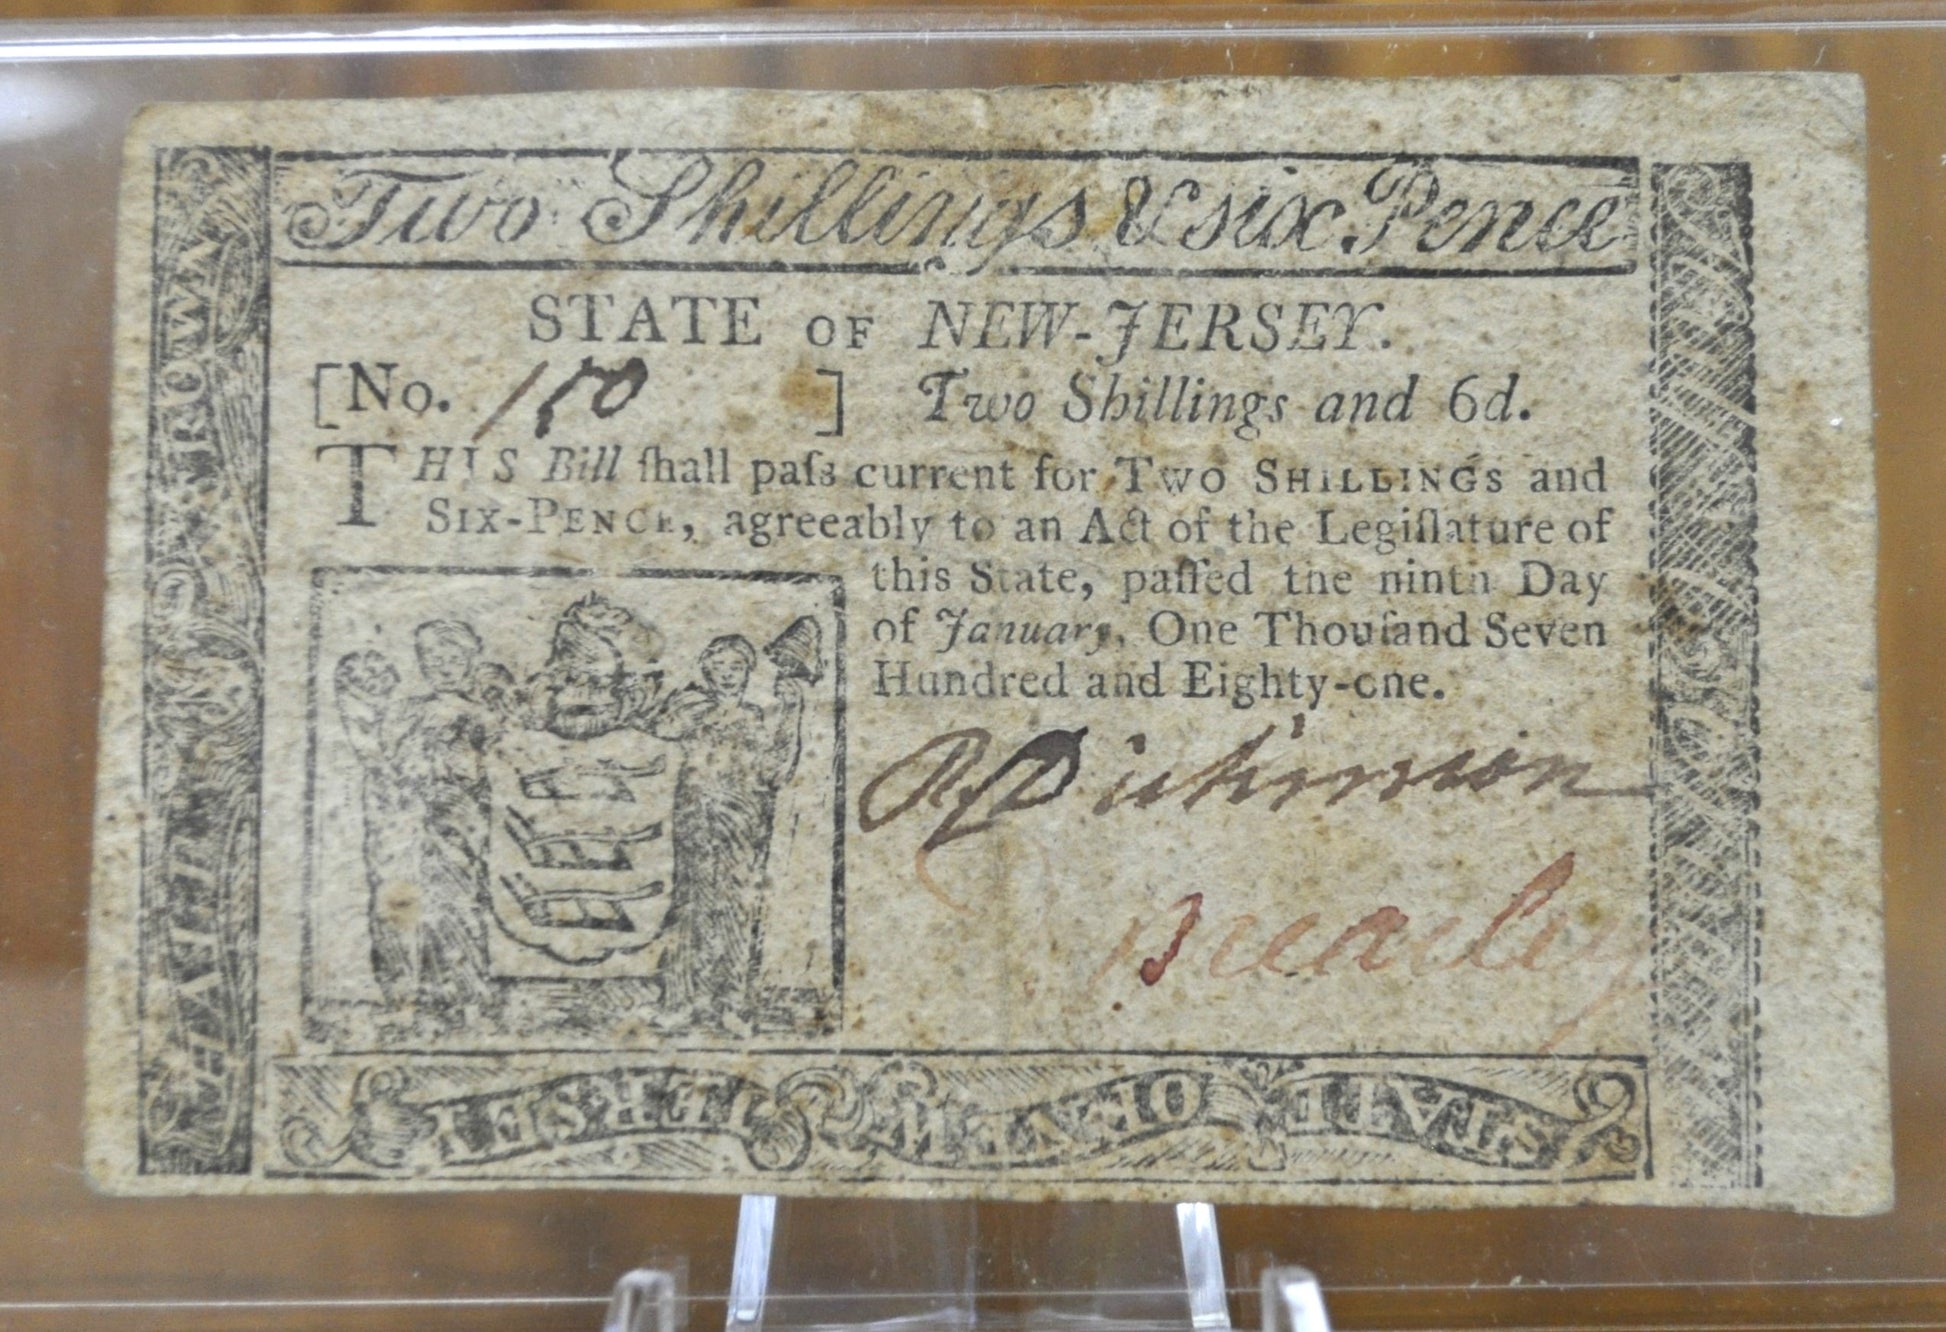 Two Shillings & six Pence
STATE OF NEW-JERSEY.
[No. 150 ] Two Shillings and 6d.
THIS Bill ſhall paſs current for TWO SHILLINGS and
SIX-PENCE, agreeably to an Act of the Legiſlature of
this State, paſſed the ninth Day
of January, One Thouſand Seven
Hundred and Eighty-one.
Dickinson
Brearley
HALF A CROWN
STATE OF NEW JERSEY